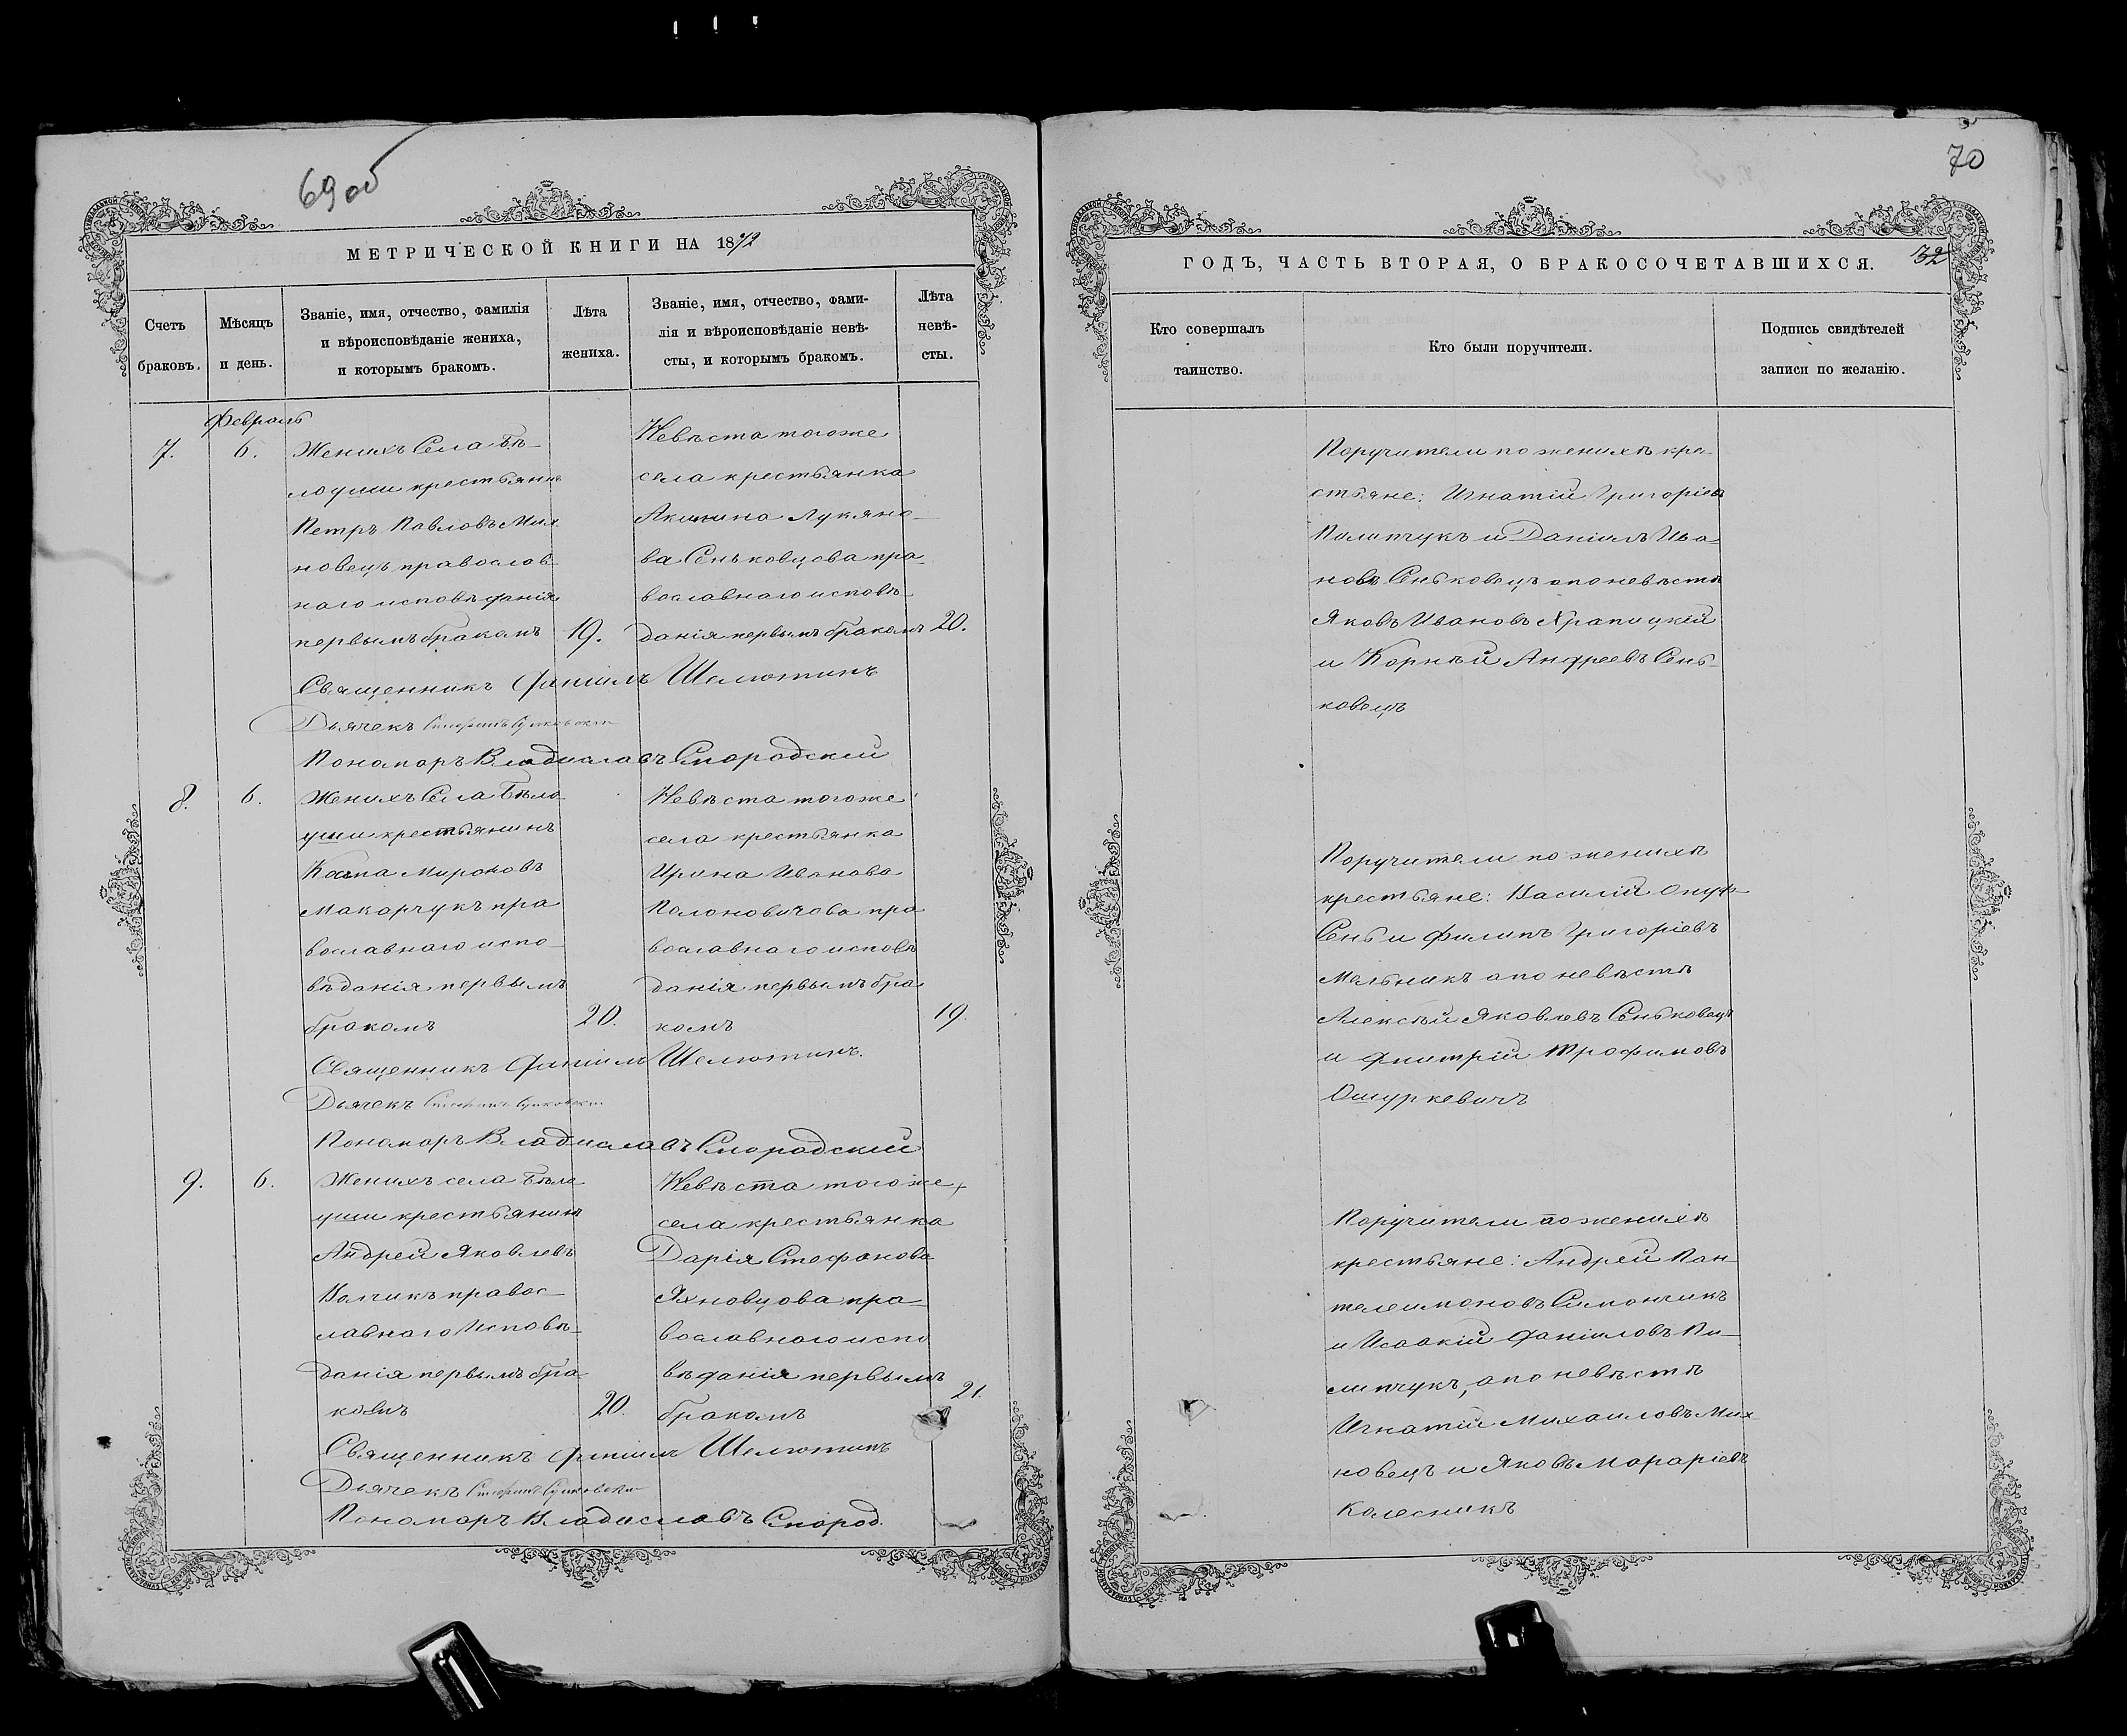 69 об
МЕТРИЧЕСКОЙ КНИГИ НА 1872
Счетъ браковъ.
Мѣсяцъ и день.
Званіе, имя, отчество, фамилія
и вѣроисповѣданіе жениха,
и которымъ бракомъ.
Лѣта
жениха.
Званіе, имя, отчество, фами-
лія и вѣроисповѣданіе невѣ-
сты, и которымъ бракомъ.
Лѣта
невѣ-
сты.
Февраль
7. 6.
Женихъ Села Бѣ-
лоуши крестьянинъ
Петръ Павловъ Мих
новецъ православ-
наго исповѣданія
первымъ бракомъ 19.
Невѣста тогоже
села крестьянка
Акилина Лукяно-
ва Сеньковцова пра-
вославнаго исповѣ-
данія первымъ бракомъ 20.
Священникъ Даніилъ Шелютинъ
Дьячекъ
Пономарь Владиславъ Смородскій
8. 6.
Женихъ Села Бѣло-
уши крестьянинъ
Козма Мироновъ
Макарчукъ пра
вославнаго испо-
вѣданія первымъ
бракомъ 20.
Невѣста тогоже
села крестьянка
Ирина Иванова
Полоновичова пра
вославнаго исповѣ
данія первымъ бра
комъ 19.
Священникъ Даніилъ Шелютинъ.
Дьячекъ
Пономарь Владиславъ Смородскій
9. 6.
Женихъ села Бѣло
уши крестьянинъ
Андрей Яковлевъ
правос-
лавнаго Исповѣ-
данія первымъ бра-
комъ 20.
Невѣста тогоже
села крестьянка
Дарія Стефанова
Яхновцова пра-
вославнаго испо
вѣданія первымъ
бракомъ 21.
Священникъ Даніилъ Шелютинъ
Дьячекъ
Пономарь Владиславъ Смород.
70
ГОДЪ, ЧАСТЬ ВТОРАЯ, О БРАКОСОЧЕТАВШИХСЯ.
32
Кто совершалъ
таинство.
Кто были поручители.
Подпись свидѣтелей
записи по желанію.
Поручители по женихѣ кре-
стьяне: Игнатій Григоріевъ
Пилипчукъ и Даніилъ Ива-
новъ Сеньковецъ а по невѣстѣ
Яковъ Ивановъ Храпицкій
и Корнѣй Андреевъ Сень-
ковецъ
Поручители по женихѣ
крестьяне: Василій Ануф-
Сень и Филипъ Григоріевъ
Мельникъ а по невѣстѣ
Алексѣй Яковлевъ Сеньковецъ
и Димитрій Трофимовъ
Ошуркевичъ
Поручители по женихѣ
крестьяне: Андрей Пан-
телеимоновъ Симончикъ
и Исаакій Даніиловъ Пи-
липчукъ, а по невѣстѣ
Игнатій Михаиловъ Мих
новецъ и Яковъ Макаріевъ
Колесникъ